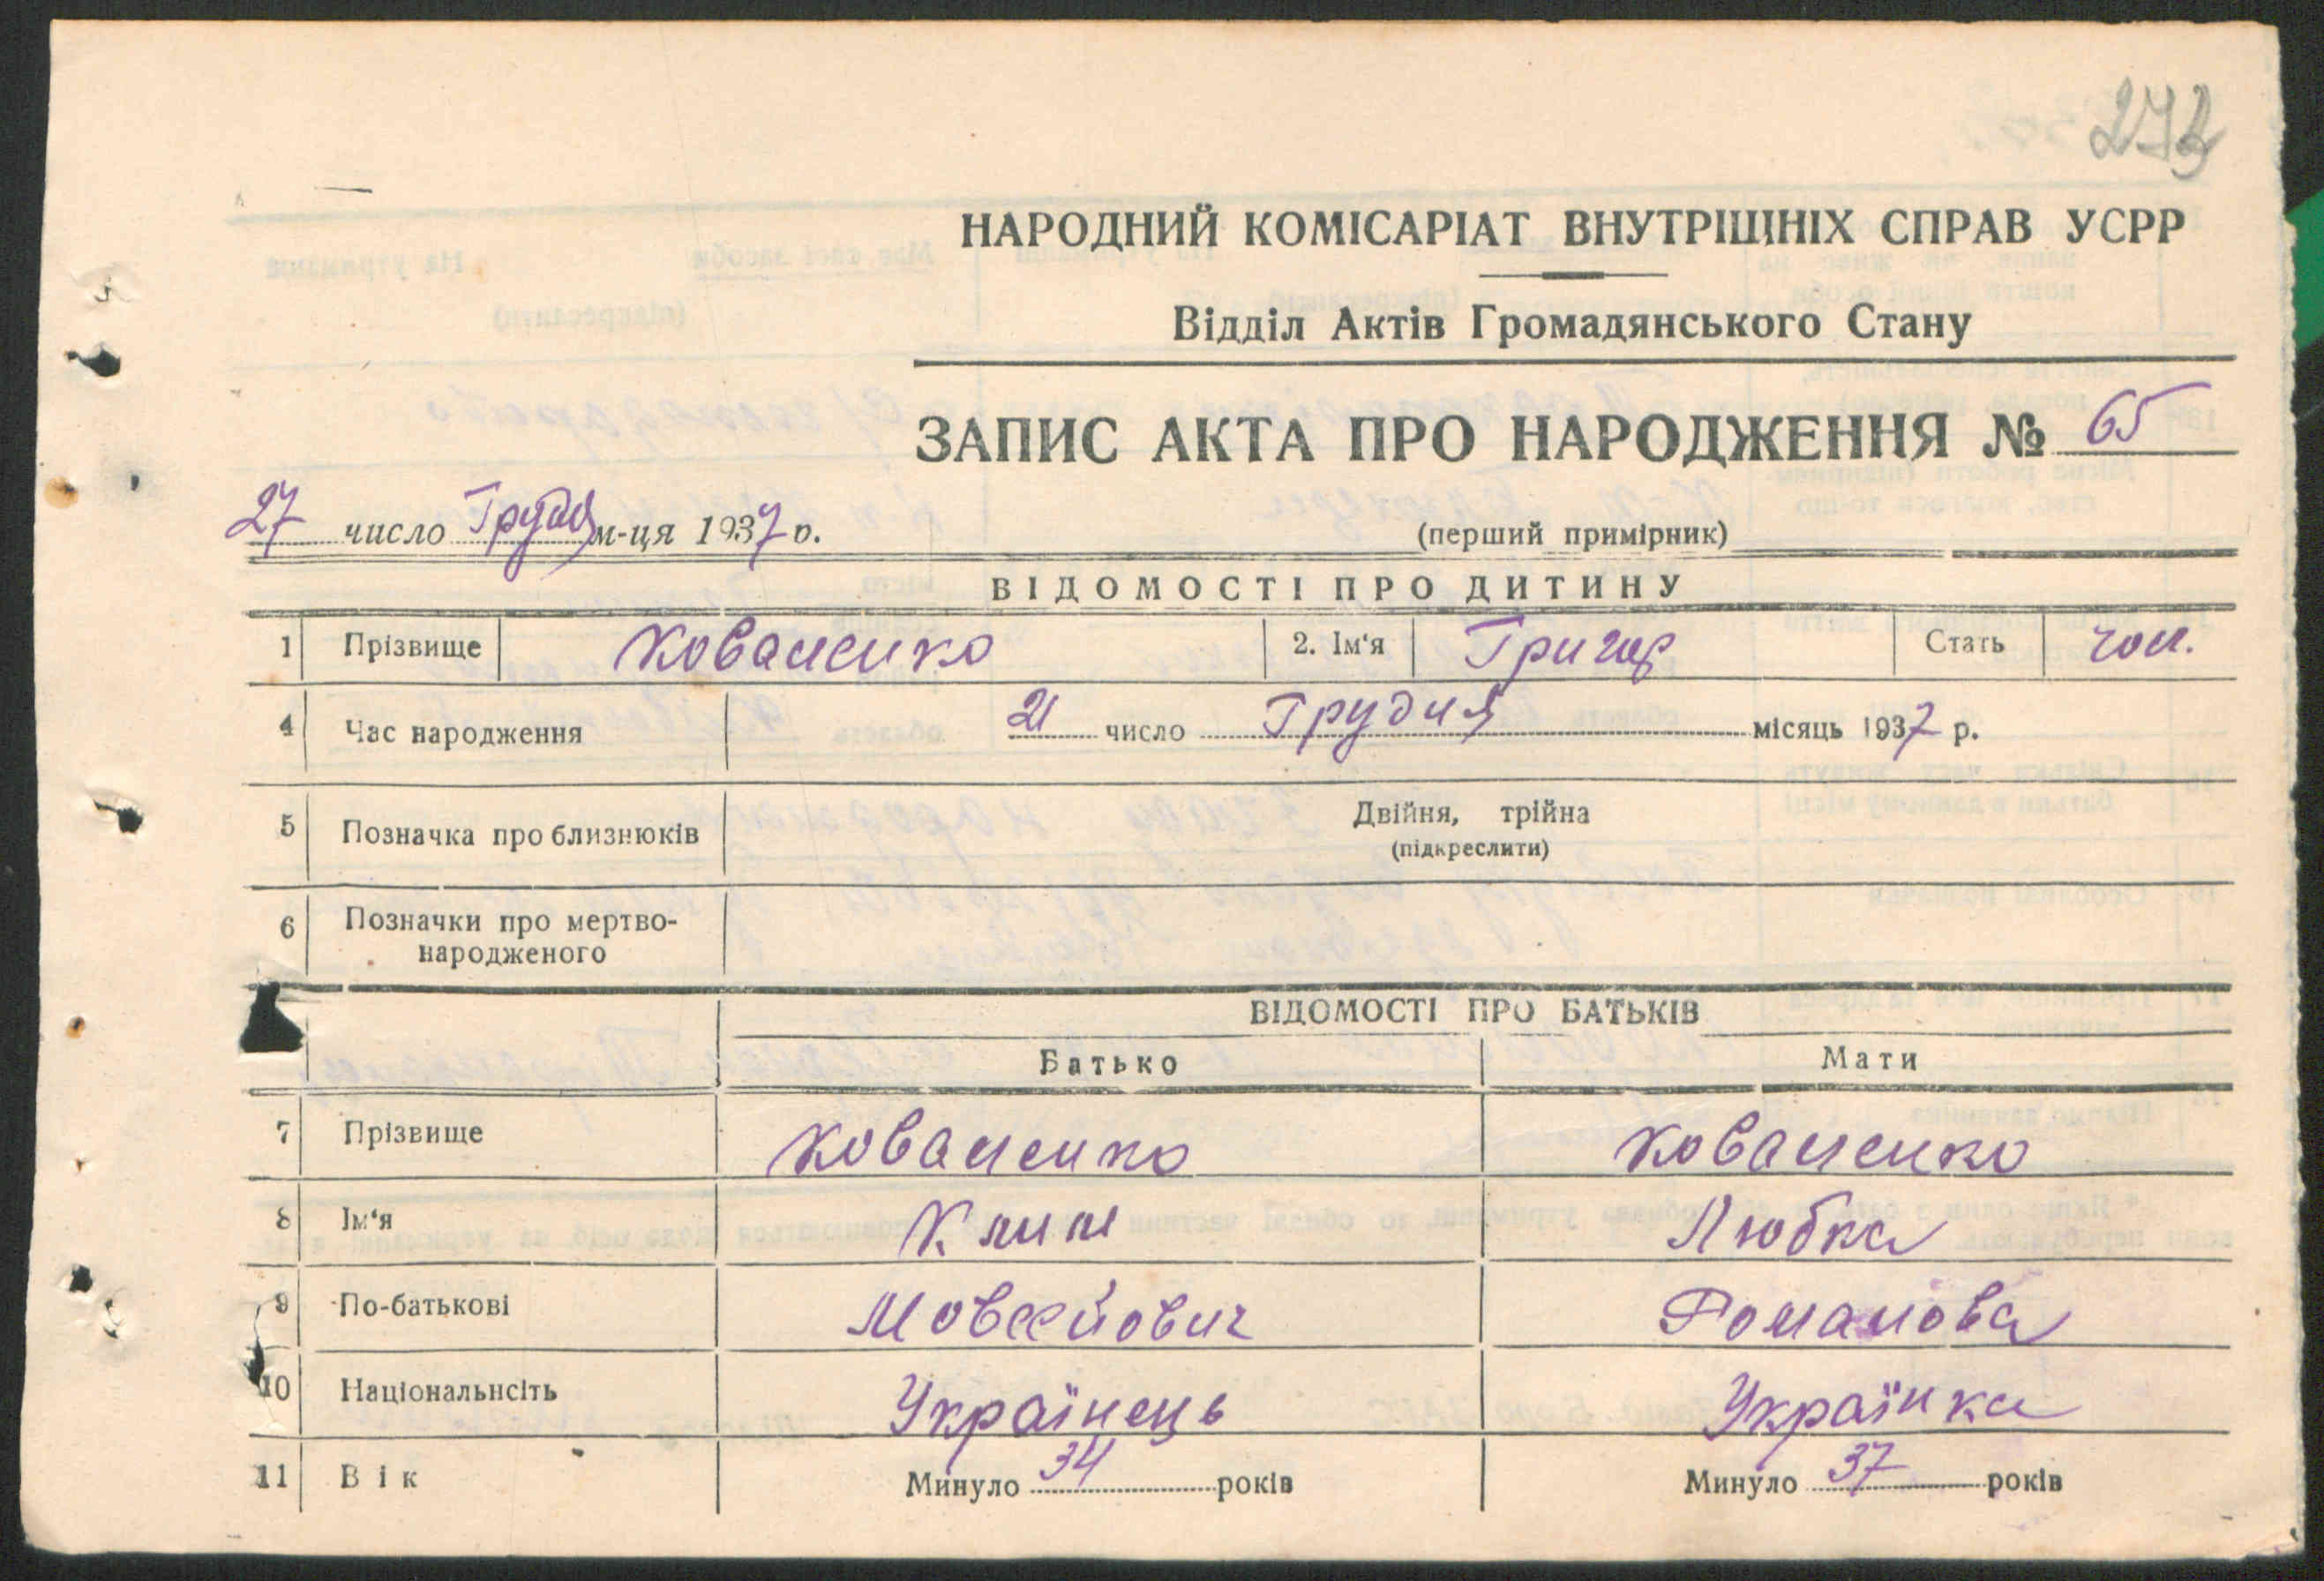 273
НАРОДНИЙ КОМІСАРІАТ ВНУТРІШНІХ СПРАВ УСРР
Відділ Актів Громадянського Стану
ЗАПИС АКТА ПРО НАРОДЖЕННЯ № 65
27 число Грудня м-ця 1937 р.
(перший примірник)
ВІДОМОСТІ ПРО ДИТИНУ
1 Прізвище Коваленко 2. Ім'я Григор Стать чол.
4 Час народження 21 число Грудня місяць 1937 р.
5 Позначка про близнюків Двійня, трійна
(підкреслити)
6 Позначки про мертво-
народженого
ВІДОМОСТІ ПРО БАТЬКІВ
Батько Мати
7 Прізвище Коваленко Коваленко
8 Ім'я Клим Любка
9 По-батькові Мовсейович Романова
10 Національнсіть Українець Українка
11 Вік Минуло 34 років Минуло 37 років